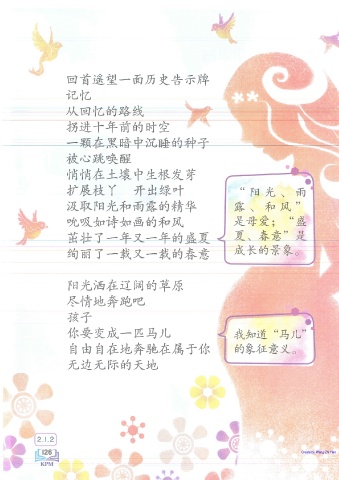 回首遥望一面历史告示牌
记忆
从回忆的路线
拐进十年前的时空
一颗在黑暗中沉睡的种子
被心跳唤醒
悄悄在土壤中生根发芽
扩展枝丫　开出绿叶
汲取阳光和雨露的精华
吮吸如诗如画的和风
茁壮了一年又一年的盛夏
绚丽了一载又一载的春意
“阳光、雨
露、和风”
是母爱；“盛
夏、春意”是
成长的景象。
阳光洒在辽阔的草原
尽情地奔跑吧
孩子
你要变成一匹马儿
自由自在地奔驰在属于你
无边无际的天地
我知道“马儿”
的象征意义。
2.1.2
126
KPM